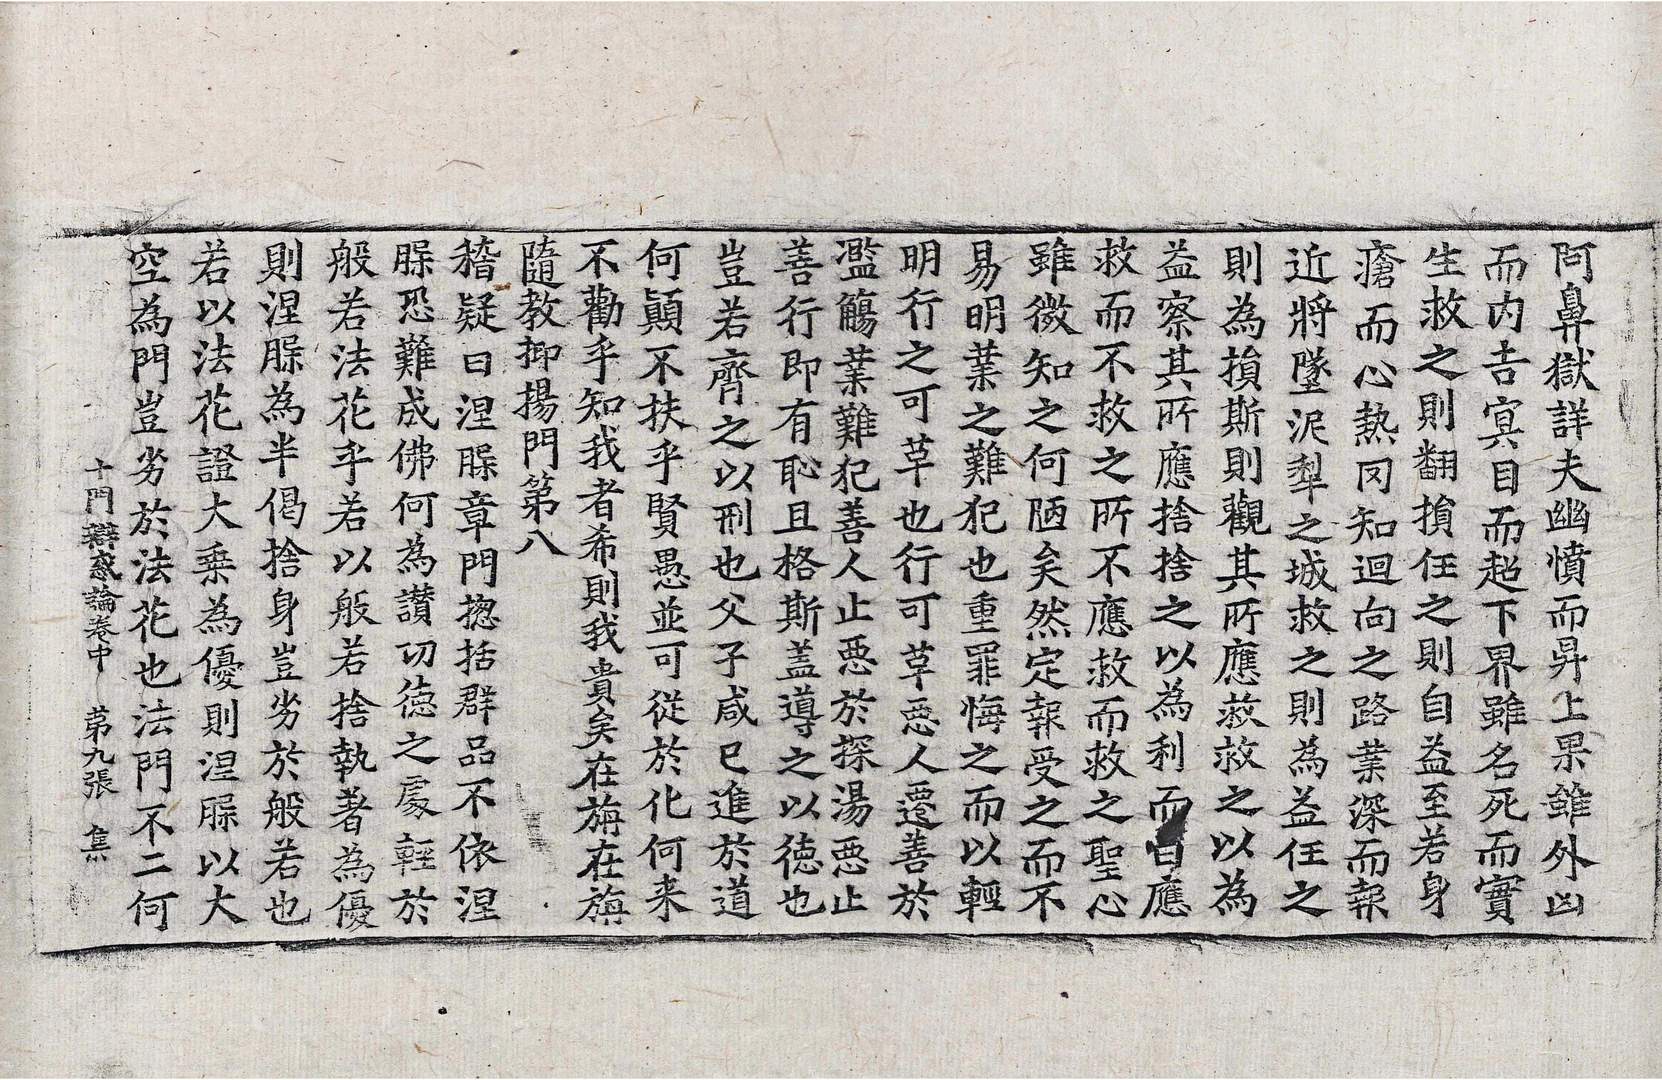 阿鼻獄詳夫幽憤而昇上果雖外凶
而内吉㝠目而超下界雖名死而實
生救之則翻損任之則自益至若身
瘡而心熱冈知迴向之路業深而報
近將墜泥犁之城救之則為益任之
則為損斯則觀其所應救救之以為
益察其所應捨捨之以為利而曰應
救而不救之所不應救而救之聖心
雖微知之何陋矣然定報受之而不
易明業之難犯也重罪悔之而以輕
明行之可草也行可草惡人遷善於
濫觴業難犯善人止惡於探湯惡止
善行即有恥且格斯盖導之以德也
豈若齊之以刑也父子咸已進於道
何顚不扶乎賢愚並可從於化何来
不勸乎知我者希則我貴矣在旃在旃
隨教抑揚門第八
稽疑曰涅𦙶章門揔括群品不依涅
𦙶恐難成佛何為讃功徳之處輕於
般若法花乎若以般若捨執著為優
則涅𦙶為半偈捨身豈劣於般若也
若以法花證大乗為優則涅𦙶以大
空為門豈劣於法花也法門不二何
十門辯惑論卷中 第九張 集